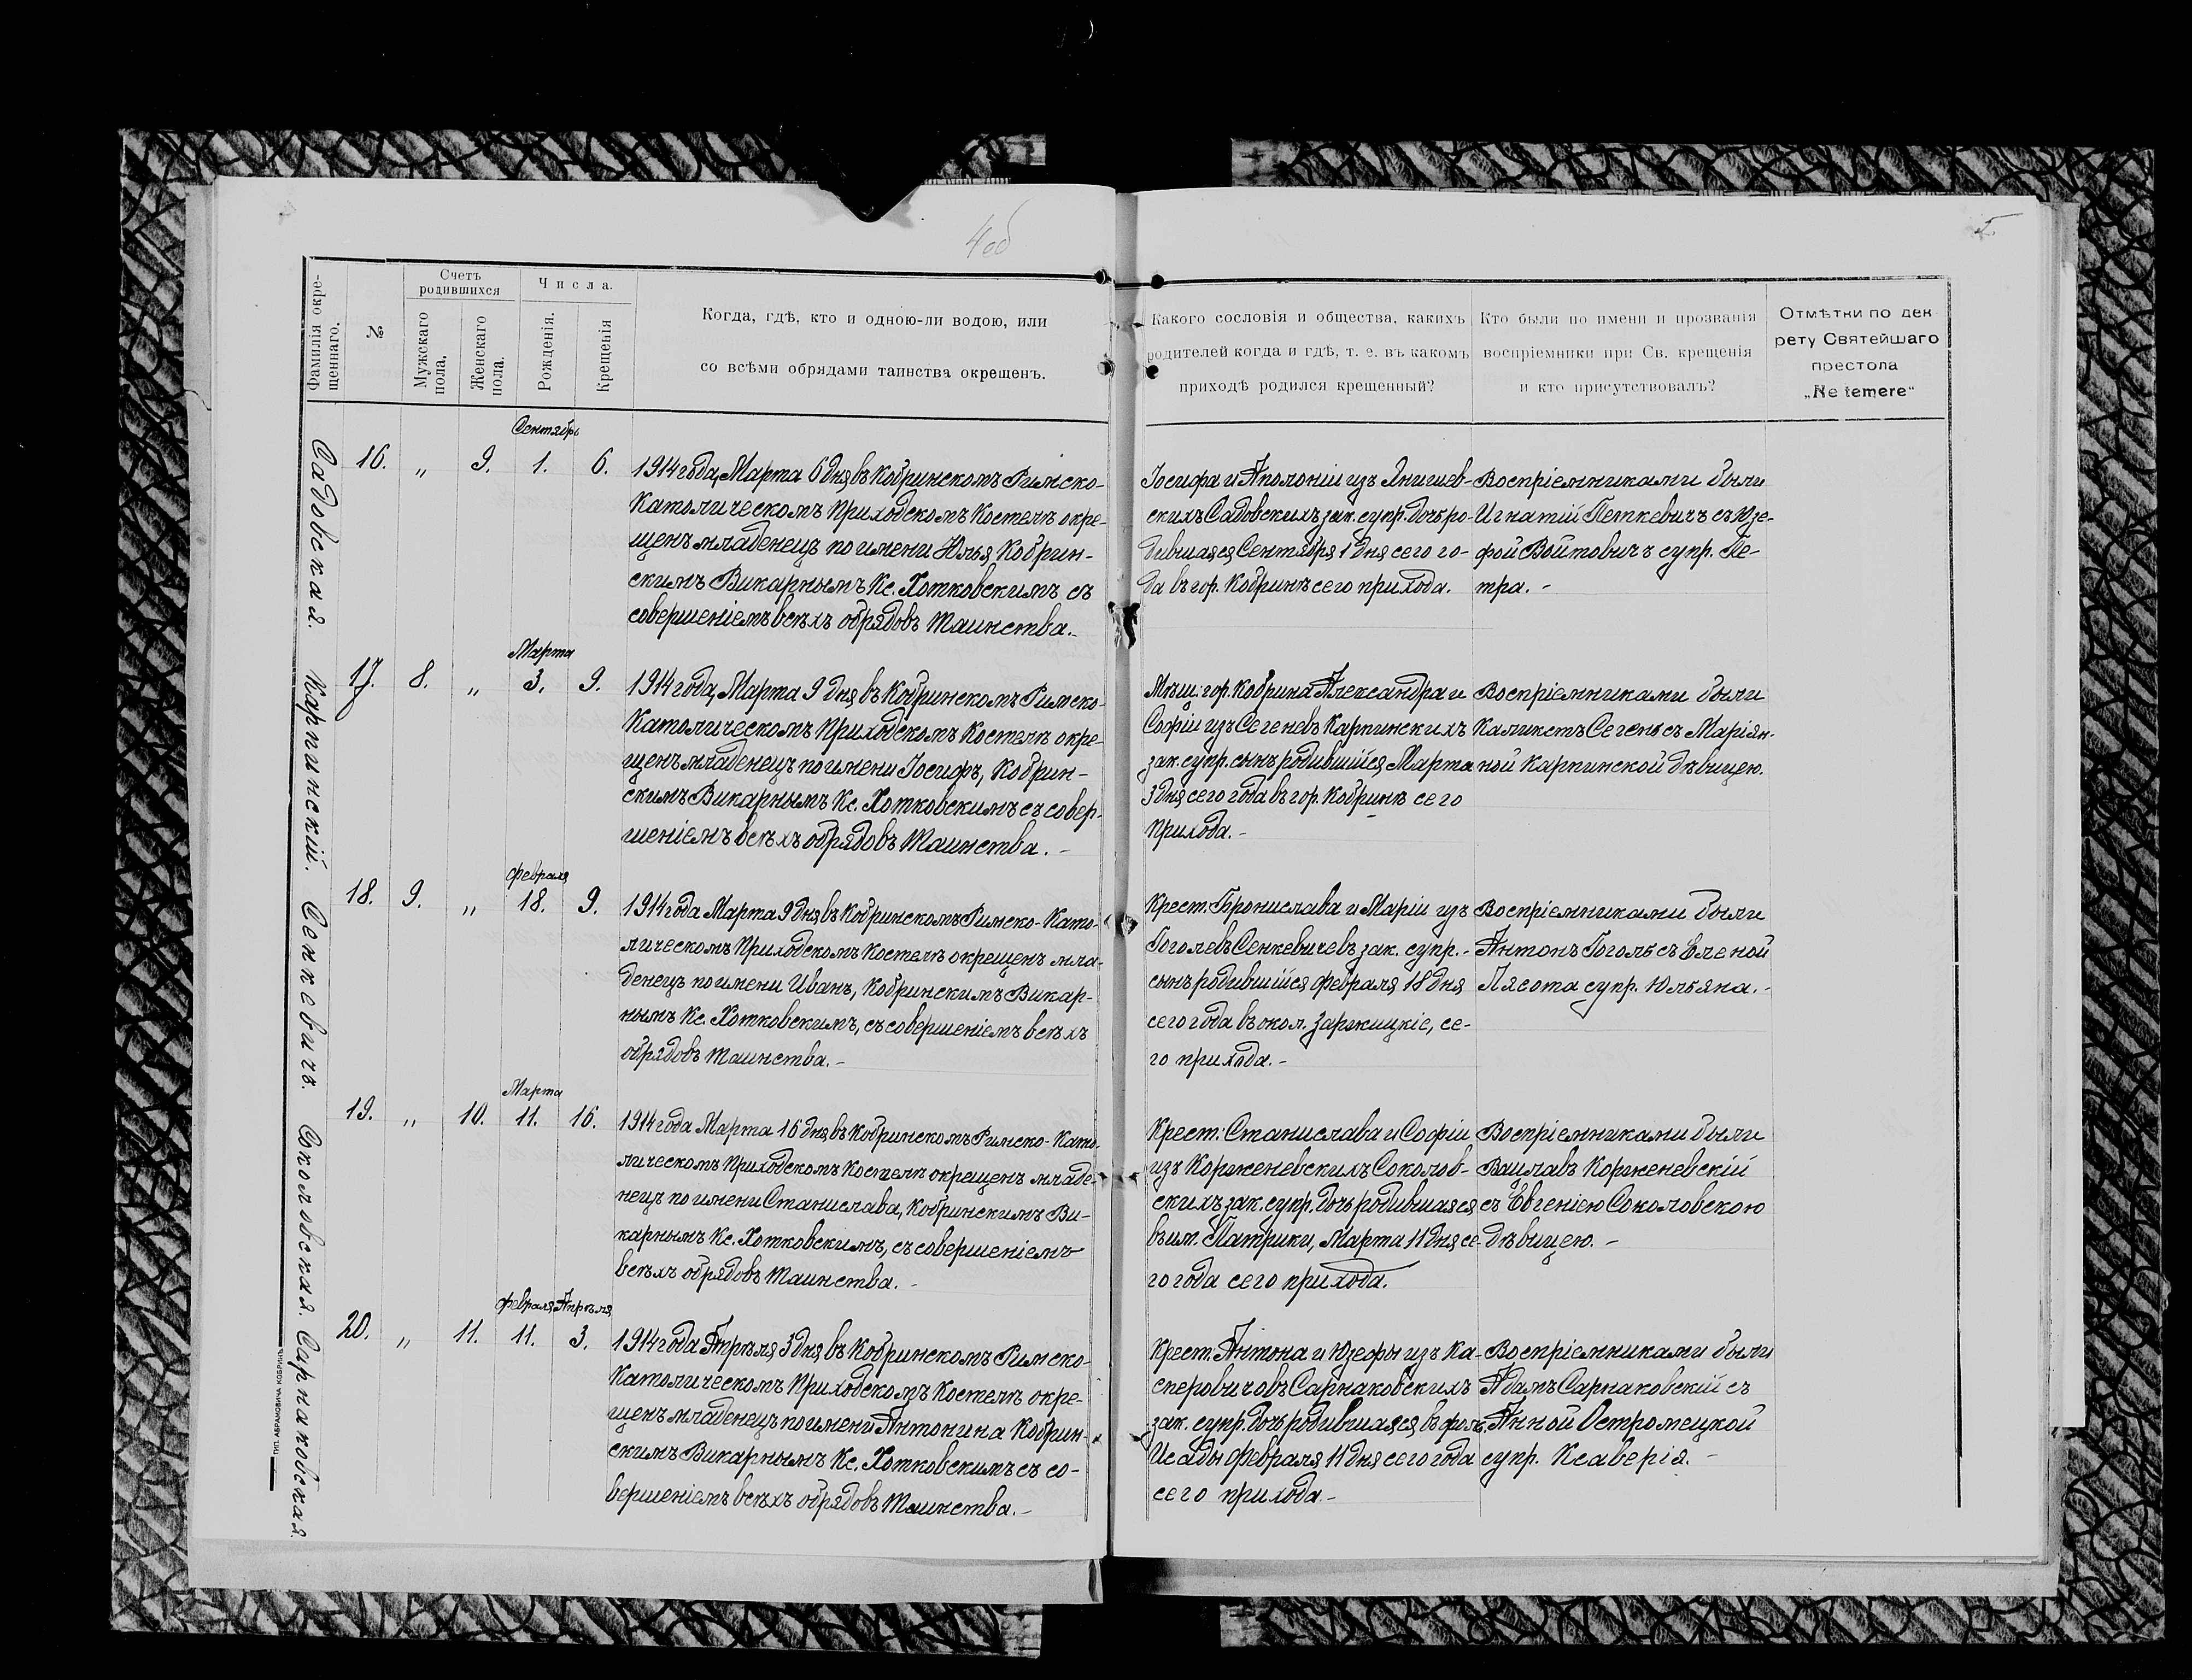 4об
5.
Фамилія окре-
щеннаго.
№
Счетъ
родившихся
Мужскаго
пола.
Женскаго
пола.
Числа.
Рожденія.
Крещенія
Когда, гдѣ, кто и одною-ли водою, или
со всѣми обрядами таинства окрещенъ.
Какого сословія и общества, какихъ
родителей когда и гдѣ, т. е. въ какомъ
приходѣ родился крещенный?
Кто были по имени и прозванія
воспріемники при Св. крещенія
и кто присутствовалъ?
Отмѣтки по дек
рету Святейшаго
престола
„Ne temere“
Садовская.
16. „ 9.
Сентябрь
1. 6.
1914 года, Марта 6 дня въ Кобринскомъ Римско-
Католическомъ Приходскомъ Костелѣ окре-
щенъ младенецъ по имени Юлья, Кобрин-
скимъ Викарнымъ Кс. Хотковскимъ съ
совершеніемъ всѣхъ обрядовъ Таинства.-
Іосифа и Аполоніи изъ Янишев-
скихъ Садовскихъ зак. супр. дочь ро-
дившаяся Сентября 1 дня сего го-
да въ гор. Кобринѣ сего прихода.
Воспріемниками были
Игнатій Петкевичъ съ Юзе-
фой Войтовичъ супр. Пе-
тра. -
Карпинскій.
17. 8. „
Марта
3. 9.
1914 года, Марта 9 дня въ Кобринскомъ Римско-
Католическомъ Приходскомъ Костелѣ окре-
щенъ младенецъ по имени Іосифъ, Кобрин-
скимъ Викарнымъ Кс. Хотковскимъ съ совер-
шеніемъ всѣхъ обрядовъ Таинства. -
Мѣщ: гор. Кобрина Александра и
Софіи изъ Сегеневъ Карпинскихъ
зак. супр. сынъ родившійся Марта
3 дня сего года въ гор. Кобринѣ сего
прихода. -
Воспріемниками были
Каликстъ Сегень съ Маріян-
ной Карпинской дѣвицею.
Сенкевичъ.
18. 9. „
Февраля
18. 9.
1914 года Марта 9 дня въ Кобринскомъ Римско-Като-
лическомъ Приходскомъ Костелѣ окрещенъ мла-
денецъ по имени Иванъ, Кобринскимъ Викар-
нымъ Кс. Хотковскимъ, съ совершеніемъ всѣхъ
обрядовъ таинства. -
Крест. Бронислава и Маріи изъ
Гоголевъ Сенкевичевъ зак. супр. -
сынъ родившійся Февраля 18 дня
сего года въ окол. Заржицкіе, се-
го прихода. -
Воспріемниками были
Антонъ Гоголь съ Еленой
Лясота супр. Юльяна. -
Сокольовская.
19. „ 10.
Марта
11. 16.
1914 года Марта 16 дня въ Кобринскомъ Римско-Като-
лическомъ Приходскомъ Костелѣ окрещенъ младе-
нецъ по имени Станислава, Кобринскимъ Ви-
карнымъ Кс. Хотковскимъ, съ совершеніемъ
всѣхъ обрядовъ Таинства. -
Крест: Станислава и Софіи
изъ Корженевскихъ Соколов-
скихъ зак. супр. дочь родившаяся
въ им. Патрики, Марта 11 дня се-
го года сего прихода.
Воспріемниками были
Вацлавъ Корженевскій
съ Евгеніею Соколовскою
дѣвицею. -
Сарнаковская.
20. „ 11.
Февраля Апрѣля
11. 3.
1914 года Апрѣля 3 дня въ Кобринскомъ Римско-
Католическомъ Приходскомъ Костелѣ окре-
щенъ младенецъ по имени Антонина Кобрин-
скимъ Викарнымъ Кс. Хотковскимъ съ со-
вершеніемъ всѣхъ обрядовъ Таинства. -
Крест. Антона и Юзефы изъ Ка-
сперовичовъ Сарнаковскихъ
зак. супр. дочь родившаяся въ фольв.
Исады Февраля 11 дня сего года
сего прихода. -
Воспріемниками были
Адамъ Сарнаковскій съ
Анной Остромецкой
супр. Ксаверія. -
ТИП. АБРАМОВИЧА КОБРИНЪ